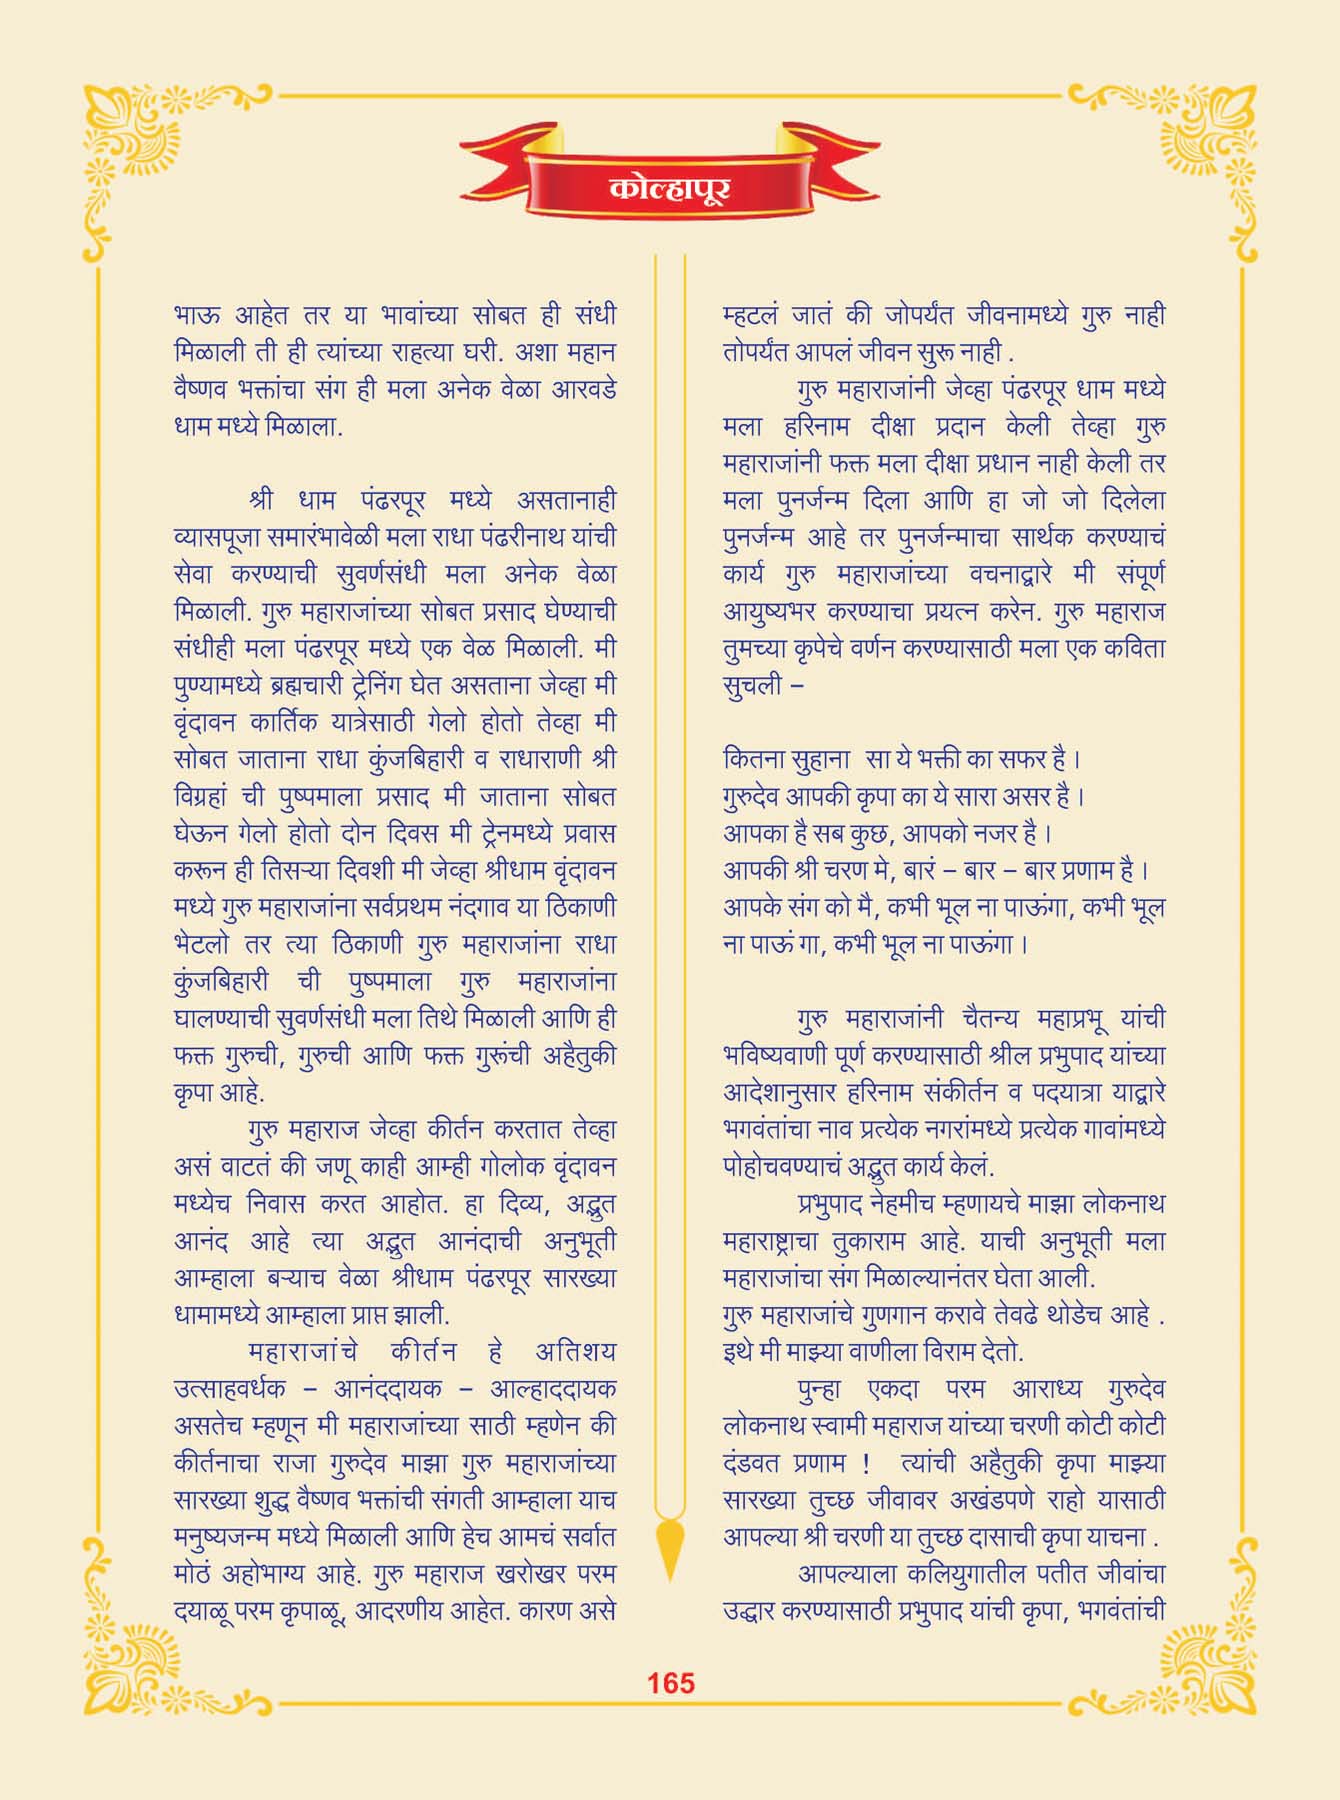 कोल्हापूर
भाऊ आहेत तर या भावांच्या सोबत ही संधी
मिळाली ती ही त्यांच्या राहत्या घरी. अशा महान
वैष्णव भक्तांचा संग ही मला अनेक वेळा आरवडे
धाम मध्ये मिळाला.
श्री धाम पंढरपूर मध्ये असतानाही
व्यासपूजा समारंभावेळी मला राधा पंढरीनाथ यांची
सेवा करण्याची सुवर्णसंधी मला अनेक वेळा
मिळाली. गुरु महाराजांच्या सोबत प्रसाद घेण्याची
संधीही मला पंढरपूर मध्ये एक वेळ मिळाली. मी
पुण्यामध्ये ब्रह्मचारी ट्रेनिंग घेत असताना जेव्हा मी
वृंदावन कार्तिक यात्रेसाठी गेलो होतो तेव्हा मी
सोबत जाताना राधा कुंजबिहारी व राधाराणी श्री
विग्रहां ची पुष्पमाला प्रसाद मी जाताना सोबत
घेऊन गेलो होतो दोन दिवस मी ट्रेनमध्ये प्रवास
करून ही तिसऱ्या दिवशी मी जेव्हा श्रीधाम वृंदावन
मध्ये गुरु महाराजांना सर्वप्रथम नंदगाव या ठिकाणी
भेटलो तर त्या ठिकाणी गुरु महाराजांना राधा
कुंजबिहारी ची पुष्पमाला गुरु महाराजांना
घालण्याची सुवर्णसंधी मला तिथे मिळाली आणि ही
फक्त गुरुची, गुरुची आणि फक्त गुरूंची अहैतुकी
कृपा आहे.
गुरु महाराज जेव्हा कीर्तन करतात तेव्हा
असं वाटतं की जणू काही आम्ही गोलोक वृंदावन
मध्येच निवास करत आहोत. हा दिव्य, अद्भुत
आनंद आहे त्या अद्भुत आनंदाची अनुभूती
आम्हाला बऱ्याच वेळा श्रीधाम पंढरपूर सारख्या
धामामध्ये आम्हाला प्राप्त झाली.
महाराजांचे कीर्तन हे अतिशय
उत्साहवर्धक – आनंददायक – आल्हाददायक
असतेच म्हणून मी महाराजांच्या साठी म्हणेन की
कीर्तनाचा राजा गुरुदेव माझा गुरु महाराजांच्या
सारख्या शुद्ध वैष्णव भक्तांची संगती आम्हाला याच
मनुष्यजन्म मध्ये मिळाली आणि हेच आमचं सर्वात
मोठं अहोभाग्य आहे. गुरु महाराज खरोखर परम
दयाळू परम कृपाळू, आदरणीय आहेत. कारण असे
म्हटलं जातं की जोपर्यंत जीवनामध्ये गुरु नाही
तोपर्यंत आपलं जीवन सुरू नाही .
गुरु महाराजांनी जेव्हा पंढरपूर धाम मध्ये
मला हरिनाम दीक्षा प्रदान केली तेव्हा गुरु
महाराजांनी फक्त मला दीक्षा प्रधान नाही केली तर
मला पुनर्जन्म दिला आणि हा जो जो दिलेला
पुनर्जन्म आहे तर पुनर्जन्माचा सार्थक करण्याचं
कार्य गुरु महाराजांच्या वचनाद्वारे मी संपूर्ण
आयुष्यभर करण्याचा प्रयत्न करेन. गुरु महाराज
तुमच्या कृपेचे वर्णन करण्यासाठी मला एक कविता
सुचली –
कितना सुहाना सा ये भक्ती का सफर है ।
गुरुदेव आपकी कृपा का ये सारा असर है ।
आपका है सब कुछ, आपको नजर है ।
आपकी श्री चरण मे, बारं – बार – बार प्रणाम है ।
आपके संग को मै, कभी भूल ना पाऊंगा, कभी भूल
ना पाऊं गा, कभी भूल ना पाऊंगा ।
गुरु महाराजांनी चैतन्य महाप्रभू यांची
भविष्यवाणी पूर्ण करण्यासाठी श्रील प्रभुपाद यांच्या
आदेशानुसार हरिनाम संकीर्तन व पदयात्रा याद्वारे
भगवंतांचा नाव प्रत्येक नगरांमध्ये प्रत्येक गावांमध्ये
पोहोचवण्याचं अद्भुत कार्य केलं.
प्रभुपाद नेहमीच म्हणायचे माझा लोकनाथ
महाराष्ट्राचा तुकाराम आहे. याची अनुभूती मला
महाराजांचा संग मिळाल्यानंतर घेता आली.
गुरु महाराजांचे गुणगान करावे तेवढे थोडेच आहे .
इथे मी माझ्या वाणीला विराम देतो.
पुन्हा एकदा परम आराध्य गुरुदेव
लोकनाथ स्वामी महाराज यांच्या चरणी कोटी कोटी
दंडवत प्रणाम ! त्यांची अहैतुकी कृपा माझ्या
सारख्या तुच्छ जीवावर अखंडपणे राहो यासाठी
आपल्या श्री चरणी या तुच्छ दासाची कृपा याचना .
आपल्याला कलियुगातील पतीत जीवांचा
उद्धार करण्यासाठी प्रभुपाद यांची कृपा, भगवंतांची
165